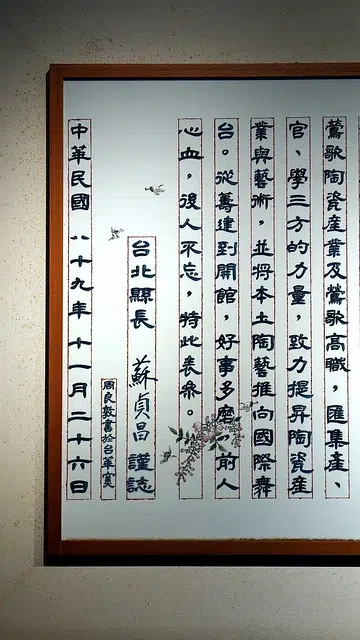 鶯歌陶瓷產業及鶯歌高職，匯集產、
官、學三方的力量，致力提昇陶瓷產
業與藝術，並將本土陶藝推向國際舞
台。從籌建到開館，好事多磨，前人
心血，後人不忘，特此表彖。
台北縣長　蘇貞昌　謹誌
周良敦書於台華窯
中華民國八十九年十一月二十六日